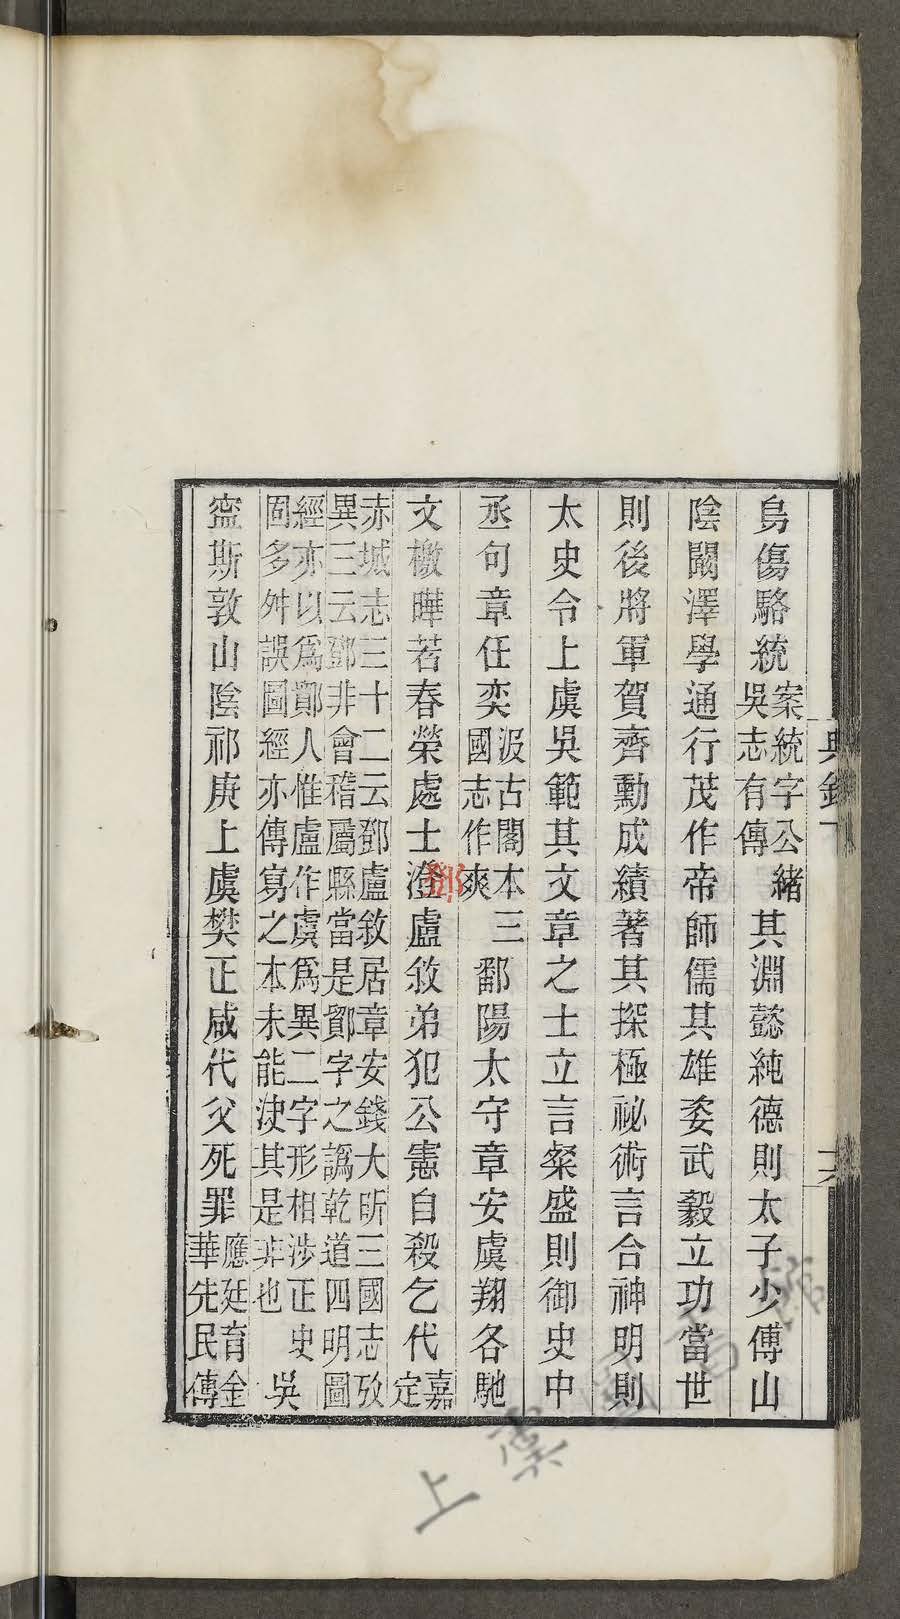 典錄下
十六
烏傷駱統案統字公緒吳志有傳其淵懿純德則太子少傅山
陰闞澤學通行茂作帝師儒其雄姿武毅立功當世
則後將軍賀齊勳成績著其探極祕術言合神明則
太史令上虞吳範其文章之士立言粲盛則御史中
丞句章任奕汲古閣本三國志作爽鄱陽太守章安虞翔各馳
文檄曄若春榮處士鄧盧敘弟犯公憲自殺乞代嘉定
赤城志三十二云鄧盧敘居章安錢大昕三國志攷
異三云鄧非會稽屬縣當是鄮字之譌乾道四明圖
經亦以爲鄮人惟盧作虞爲異二字形相涉正史
固多舛誤圖經亦傳寫之本未能決其是非也吳
寍斯敦山陰祁庚上虞樊正咸代父死罪應廷育金華先民傳
上虞圖書館